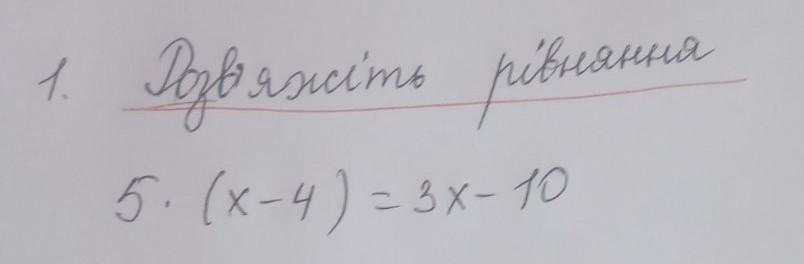 1. Розв'яжіть рівняння
5 · (x - 4) = 3x - 10